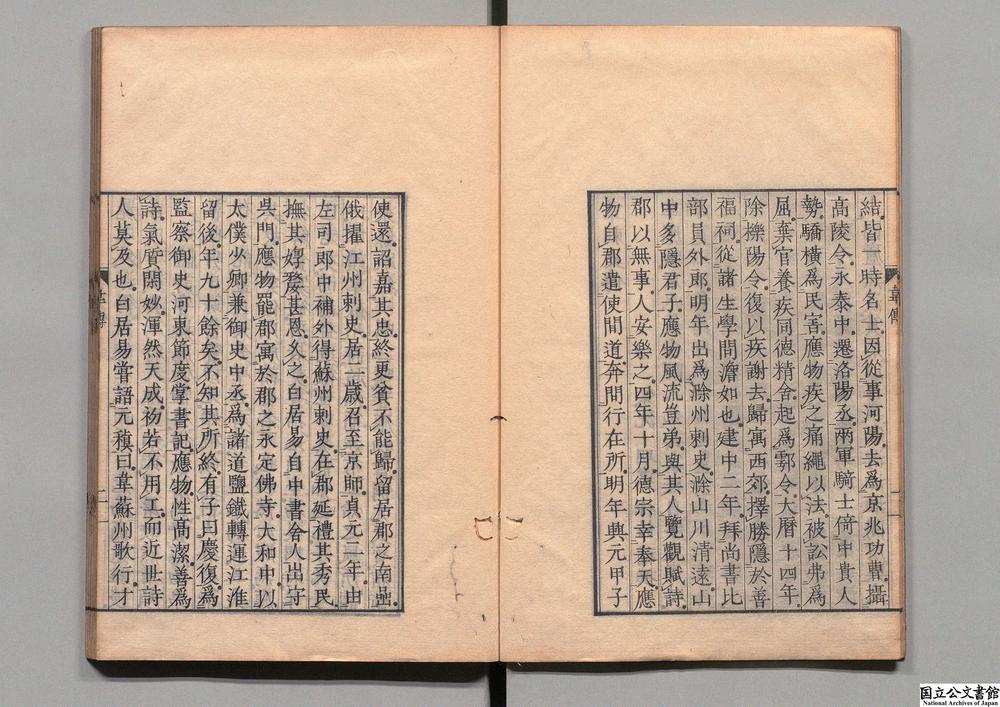 結皆一時名士因從事河陽去爲京兆功曹攝
高陵令永泰中遷洛陽丞兩軍騎士倚中貴人
勢驕橫爲民害應物疾之痛繩以法被訟弗爲
屈棄官養疾同德精舍起爲鄠令大曆十四年
除櫟陽令復以疾謝去歸寓西郊擇勝隱於善
福祠從諸生學問澹如也建中二年拜尚書比
部員外郎明年出爲滁州刺史滁山川清遠山
中多隱君子應物風流豈弟與其人覽觀賦詩
郡以無事人安樂之四年十月德宗幸奉天應
物自郡遣使間道奔問行在所明年興元甲子
韋傳
使還詔嘉其忠終更貧不能歸留居郡之南巖
俄擢江州刺史居二歲召至京師貞元二年由
左司郎中補外得蘇州刺史在郡延禮其秀民
撫其惸嫠甚恩久之白居易自中書舍人出守
吳門應物罷郡寓於郡之永定佛寺大和中以
太僕少卿兼御史中丞爲諸道鹽鐵轉運江淮
留後年九十餘矣不知其所終有子曰慶復爲
監察御史河東節度掌書記應物性高潔善爲
詩氣質閑妙渾然天成初若不用工而近世詩
人莫及也白居易嘗語元稹曰韋蘇州歌行才
韋傳
二
国立公文書館
National Archives of Japan